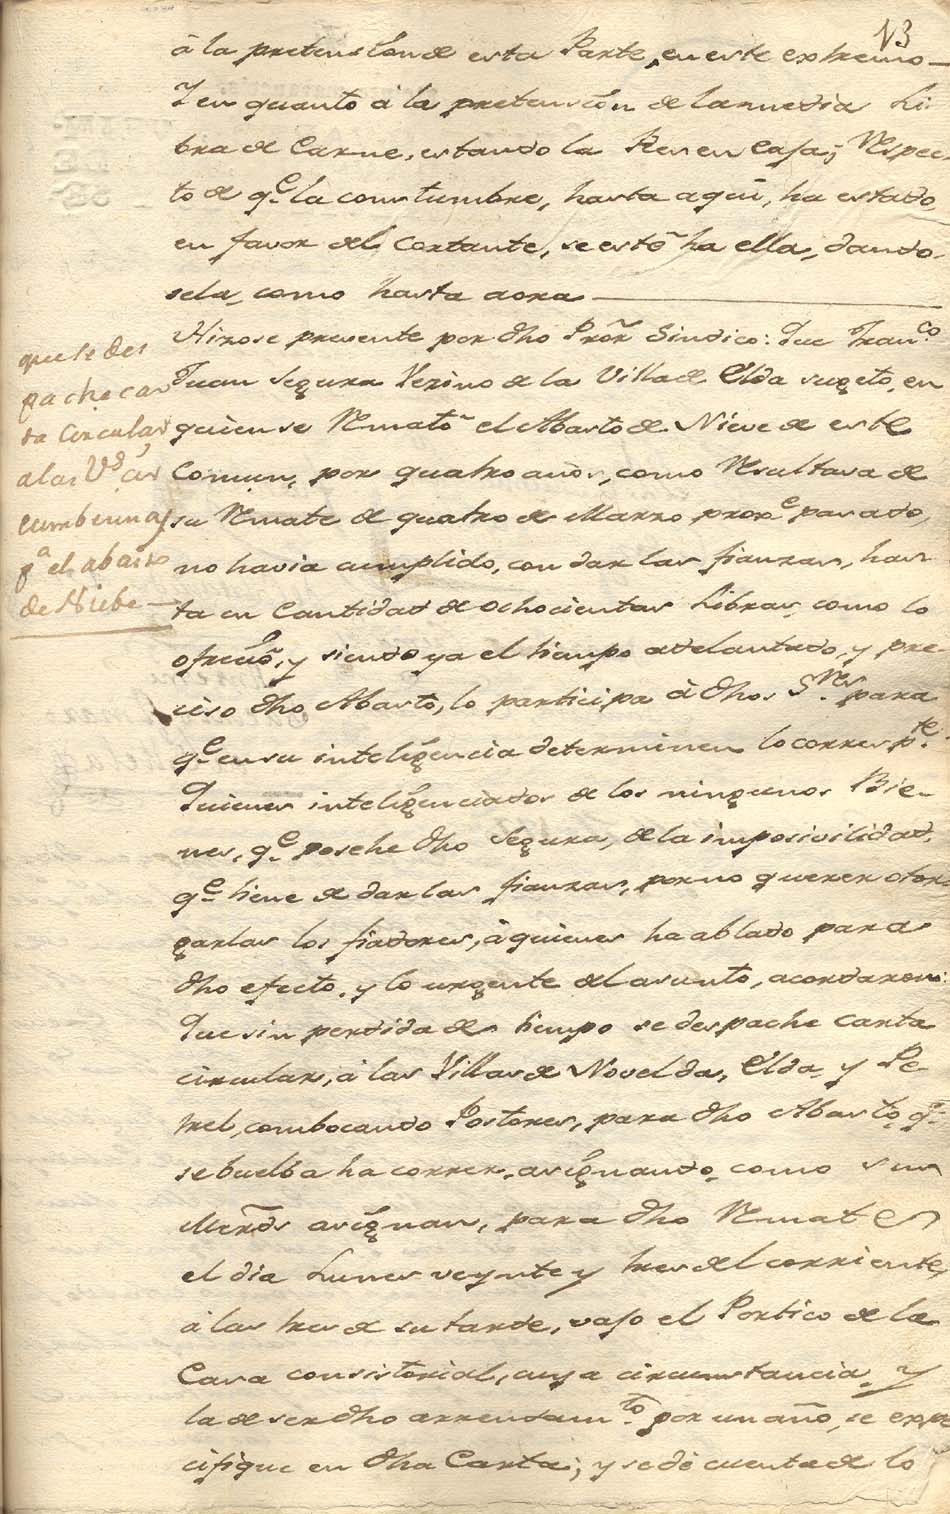 13
à la pretension de esta Parte, en este extremo
Y en quanto à la pretension de la media Li-
bra de Carne, estando la Res en Casa; Respec-
to de qe. la constumbre, hasta aqui, ha estado
en favor del Cortante, se esté ha ella, dando-
sela, como hasta aora
Hizose presente por dho Pror Sindico: Que Franco
Juan Segura Vezino de la Villa de Elda sugeto, en
quien se Remató el Abasto de Nieve de este
Comun, por quatro años, como Resultava de
su Remate de quatro de Marzo proxe pasado,
no havia cumplido, con dar las fianzas, has-
ta en Cantidad de ochocientas Libras, como lo
ofreció, y siendo ya el tiempo adelantado, y pre-
ciso dho Abasto, lo participa à dhos Sres. para
qe. en su inteligencia determinen lo correspte.
Quienes inteligenciados de los ningunos Bie-
nes, qe. posehe dho Segura, de la imposivilidad,
qe. tiene de dar las fianzas, por no querer otor-
garlas los fiadores, à quienes ha ablado para
dho efecto, y lo urgente del asunto, acordaron:
Que sin perdida de tiempo se despache carta
circular, à las Villas de Novelda, Elda, y Pe-
trel, combocando Postores, para dho Abasto, qe.
se buelba ha correr, asignando, como sus
Mercds asignan, para dho Remate
el dia Lunes veynte y tres del corriente,
à las tres de su tarde, vajo el Portico de la
Casa consistorial, cuya circunstancia, y
la de ser dho arrendamto. por un año, se expe-
cifique en dha Carta; y se dé cuenta de lo
que se des
pache car
ta Circular
a las Vs. cir
cumbecinas
pa. el abasto
de Niebe